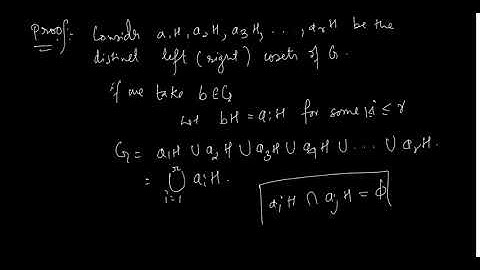 Proof:- Consider a₁H, a₂H, a₃H, ..., aᵣH be the
distinct left (right) cosets of G.
if we take b∈G
Let bH = aᵢH for some 1≤i≤r
G = a₁H ∪ a₂H ∪ a₃H ∪ a₄H ∪ ... ∪ aᵣH.
= ⋃ᵢ₌₁ʳ aᵢH.
aᵢH ∩ aⱼH = ϕ